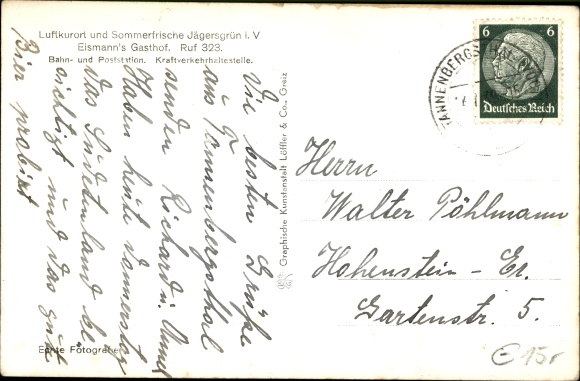 Luftkurort und Sommerfrische Jägersgrün i. V
Eismann's Gasthof. Ruf 323.
Bahn- und Poststation. Kraftverkehrhaltestelle.
Die besten Grüße
aus Tannenbergsthal
senden Richard u. Anna
Haben heut Donnerstag
das Sudetenland be
sichtigt und das gute
Bier probirt
Echte Fotografie
Graphische Kunstanstalt Löffler & Co., Greiz
TANNENBERGSTHAL
6 6
Deutsches Reich
Herrn
Walter Pöhlmann
Hohenstein - Er.
Gartenstr. 5.
€ 15,-